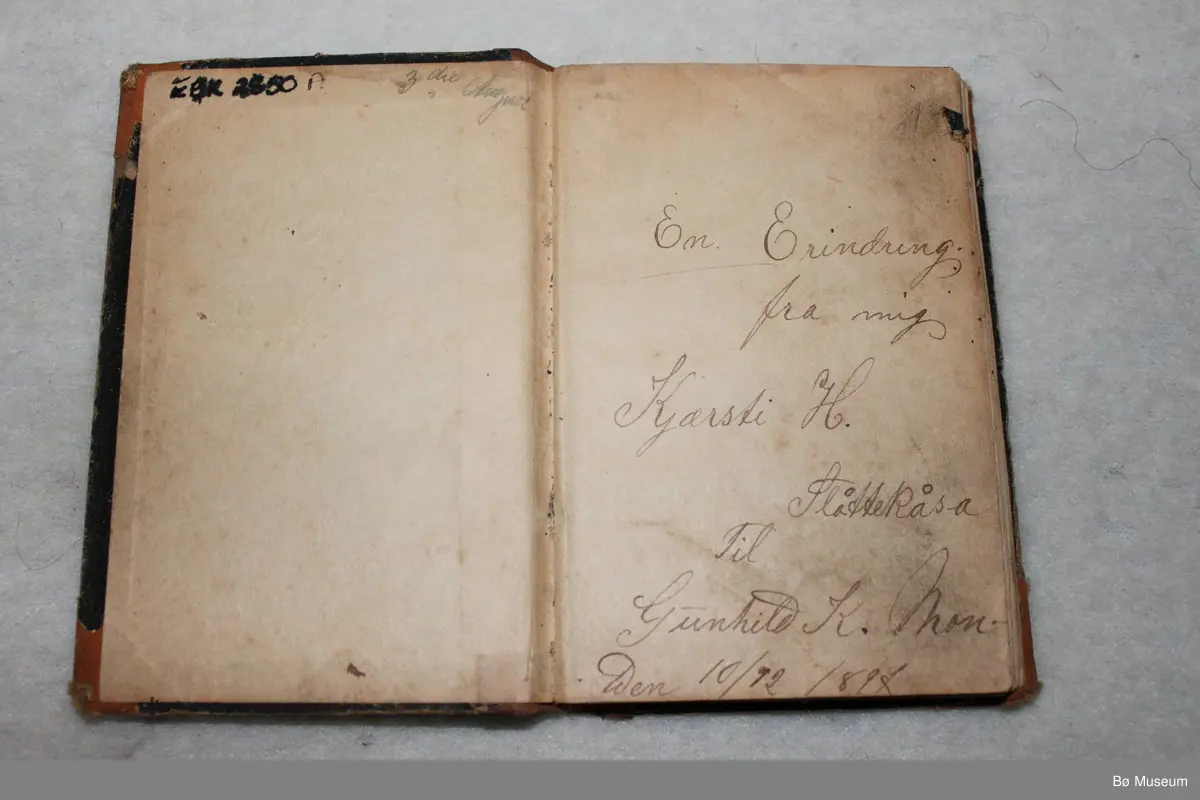 3 die
En. Erindring.
fra mig
Kjærsti H.
Slåttekåsa
Til
Gunhild K. Mon-
Den 10/12 189
Bø Museum